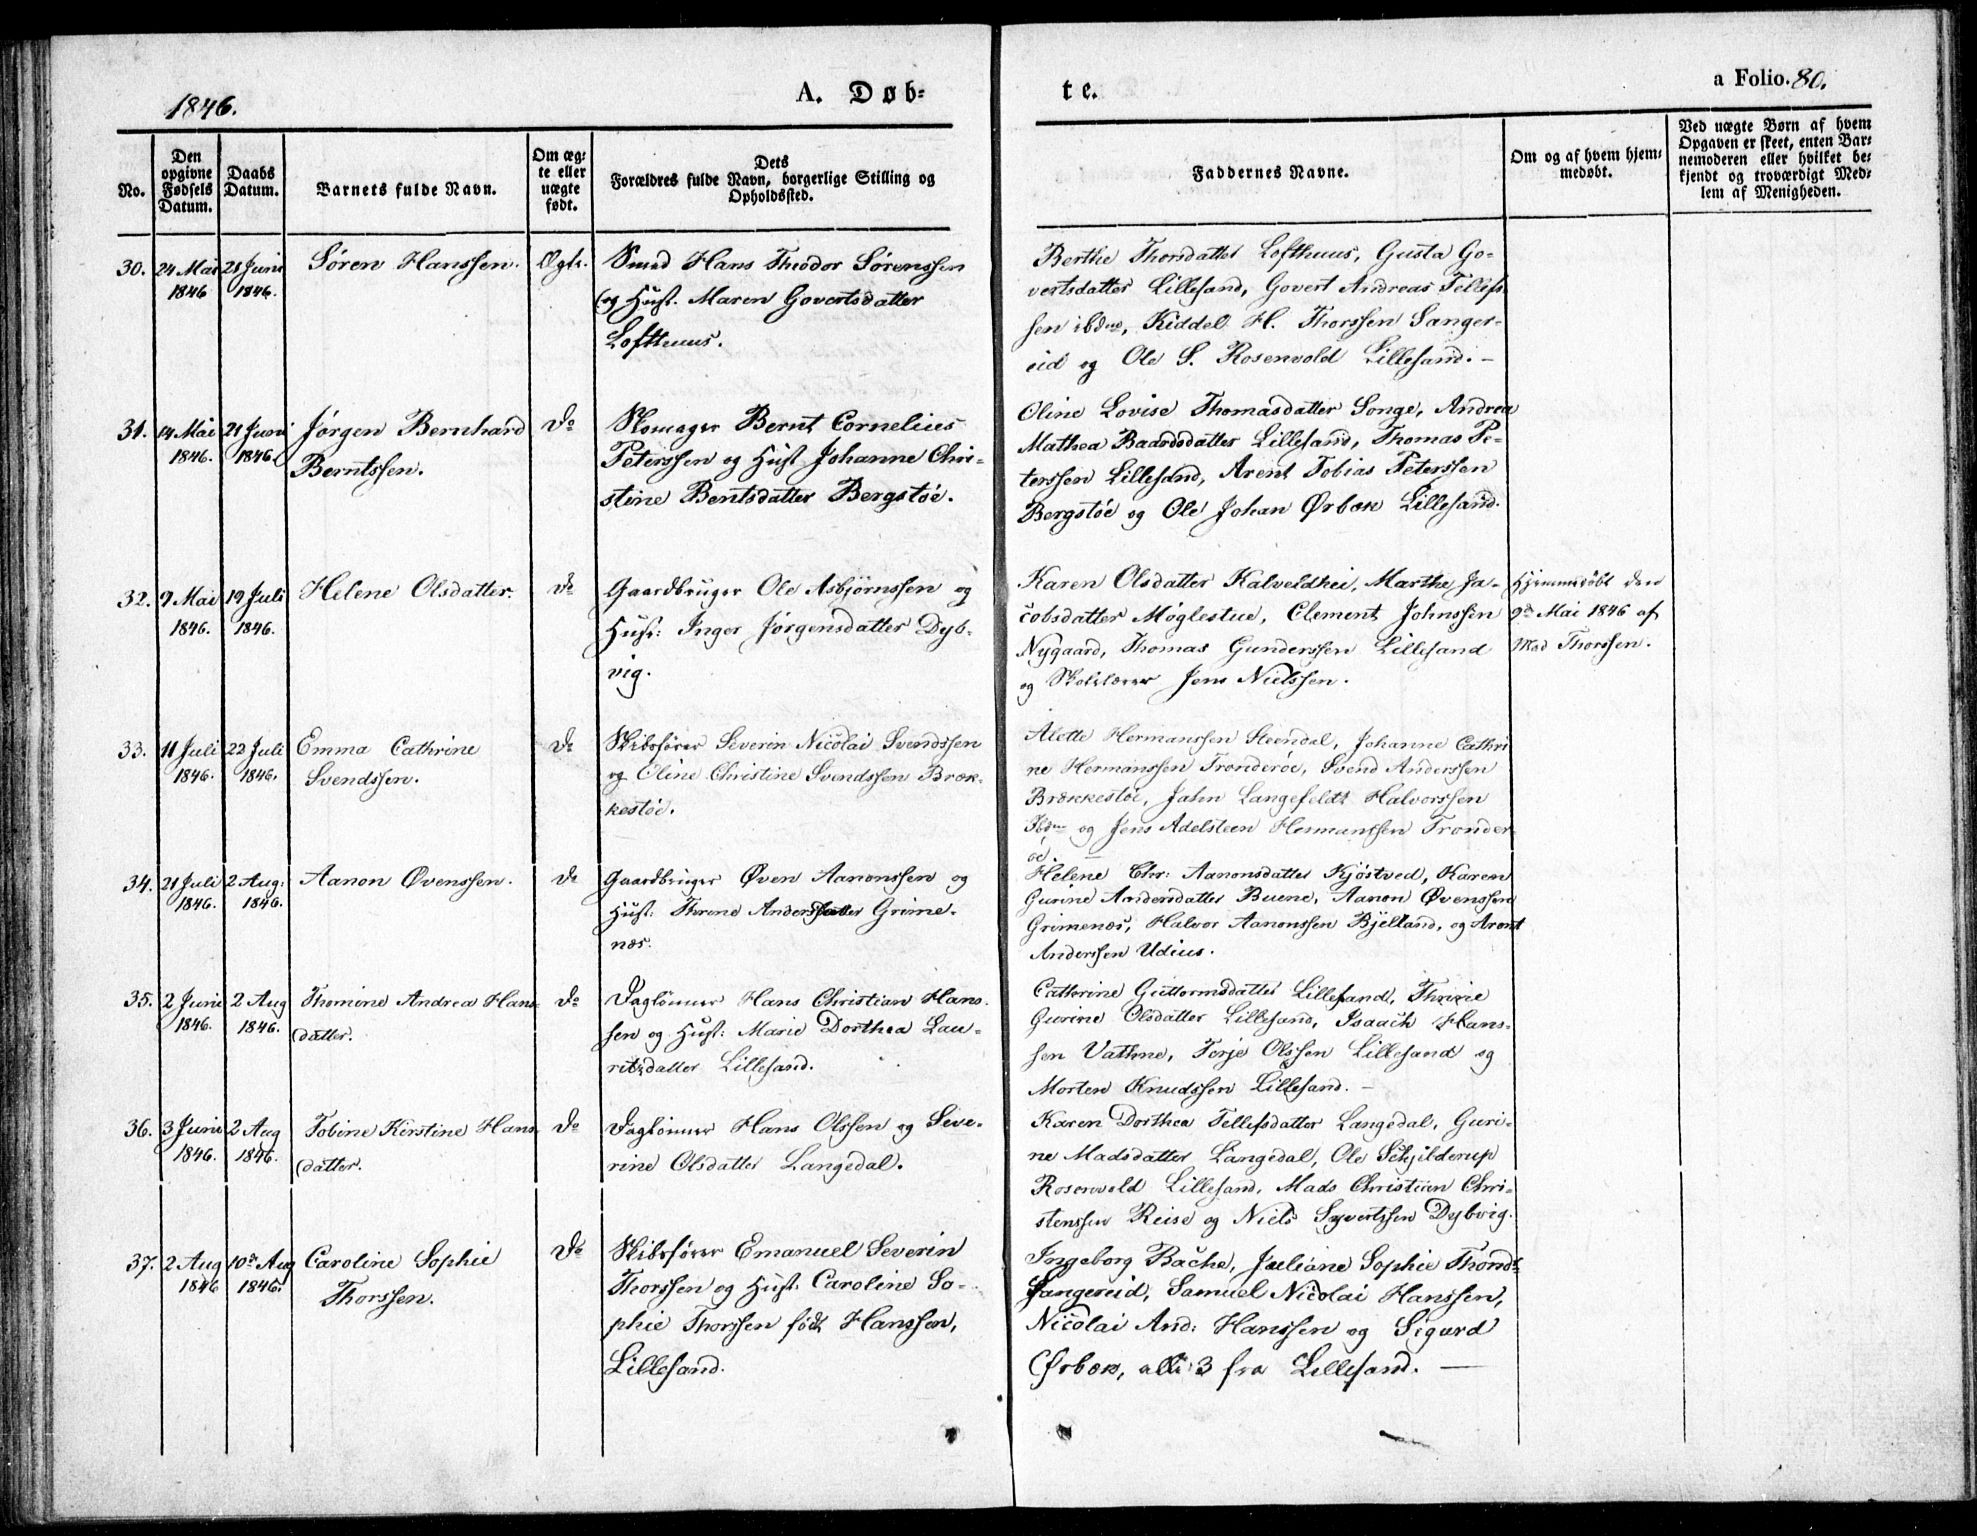 1846.
A. Døb-
te.
a Folio. 80.
No.
Den opgivne Fødsels Datum.
Daabs Datum.
Barnets fulde Navn.
Om ægte eller uægte født.
Dets Forældres fulde Navn, borgerlige Stilling og Opholdssted.
Faddernes Navne.
Om og af hvem hjemmedøbt.
Ved uægte Børn af hvem Opgaven er skeet, enten Barnemoderen eller hvilket bekjendt og troværdigt Medlem af Menigheden.
30. 24 Mai 1846 21 Juni 1846. Søren Hanssen. Ægte.
Smed Hans Theodor Sørenssen
og Hust. Maren Govertsdatter
Lofthuus.
Berthe Thorsdatter Lofthuus, Gusta Go-
vertsdatter Lillesand, Govert Andreas Tellefs-
sen ibdm, Kiddel H. Thorssen Sanger-
eid og Ole S. Rosenvold Lillesand. —
31. 14 Mai 1846. 21 Juni 1846. Jørgen Bernhard
Berntssen. Do
Skomager Bernt Cornelius
Peterssen og Hust Johanne Chri-
stine Bentsdatter Bergstøe.
Oline Lovise Thomasdatter Songe, Andrea
Mathea Baardsdatter Lillesand, Thomas Pe-
terssen Lillesand, Arent Tobias Peterssen
Bergstøe og Ole Johan Ørbæk Lillesand.
32. 9 Mai 1846. 19 Juli 1846. Helene Olsdatter. Do
Gaardbruger Ole Asbjørnssen og
Hust: Inger Jørgensdatter Dyb-
vig.
Karen Olsdatter Kalveldhei, Marthe Ja-
cobsdatter Møglestue, Clement Johnssen
Nygaard, Thomas Gunderssen Lillesand
og Skolelærer Jens Nielssen.
Hjemmedøbt den
9de Mai 1846 af
Mad Thorssen.
33. 11 Juli 1846. 22 Juli 1846. Emma Cathrine
Svendssen. Do
Skibsfører Severin Nicolai Svendssen
og Eline Christine Svendssen Bræk-
kestøe.
Alette Hermanssen Steendal, Johanne Cathri
ne Hermanssen Trønderøe, Svend Anderssen
Brækkestøe, Jahn Langefeldt Halvorssen
Ibdm og Jens Adelsteen Hermanssen Trønder-
øe.
34. 21 Juli 1846. 2 Aug: 1846. Aanon Øvenssen. Do
Gaardbruger Øven Aanonssen og
Hust: Thrine Andersdatter Grime-
næs.
Helene Chr: Aanonsdatter Kjøstved, Karen
Gurine Andersdatter Buene, Aanon Øvenssen
Grimenæs, Halvor Aanonssen Bjelland, og Arent
Anderssen Udius.
35. 2 Juni 1846. 2 Aug 1846. Thomine Andrea Hans-
datter. Do
Daglønner Hans Christian Hans-
sen og Hust: Marie Dorthea Lau-
ritzdatter Lillesand.
Cathrine Guttormsdatter Lillesand, Thrine
Gurine Olsdatter Lillesand, Isaach Hans-
sen Vathne, Terje Olssen Lillesand og
Morten Knudssen Lillesand. —
36. 3 Juni 1846. 2 Aug 1846. Tobine Kirstine Hans-
datter. Do
Daglønner Hans Olssen og Seve-
rine Olsdatter Langedal.
Karen Dorthea Tellefsdatter Langedal, Guri-
ne Madsdatter Langedal, Ole Schjilderup
Rosenvold Lillesand, Mads Christian Chri-
stenssen Reise og Niels Syvertssen Dybvig.
37. 2 Aug 1846 10de Aug 1846. Caroline Sophie
Thorssen. Do
Skibsfører Emanuel Severin
Thorssen og Hust. Caroline So-
phie Thorssen født Hanssen,
Lillesand.
Ingeborg Bache, Juliane Sophie Thondr
Sangereid, Samuel Nicolai Hanssen,
Nicolai And: Hanssen og Sigurd
Ørbæk, alle 3 fra Lillesand. —